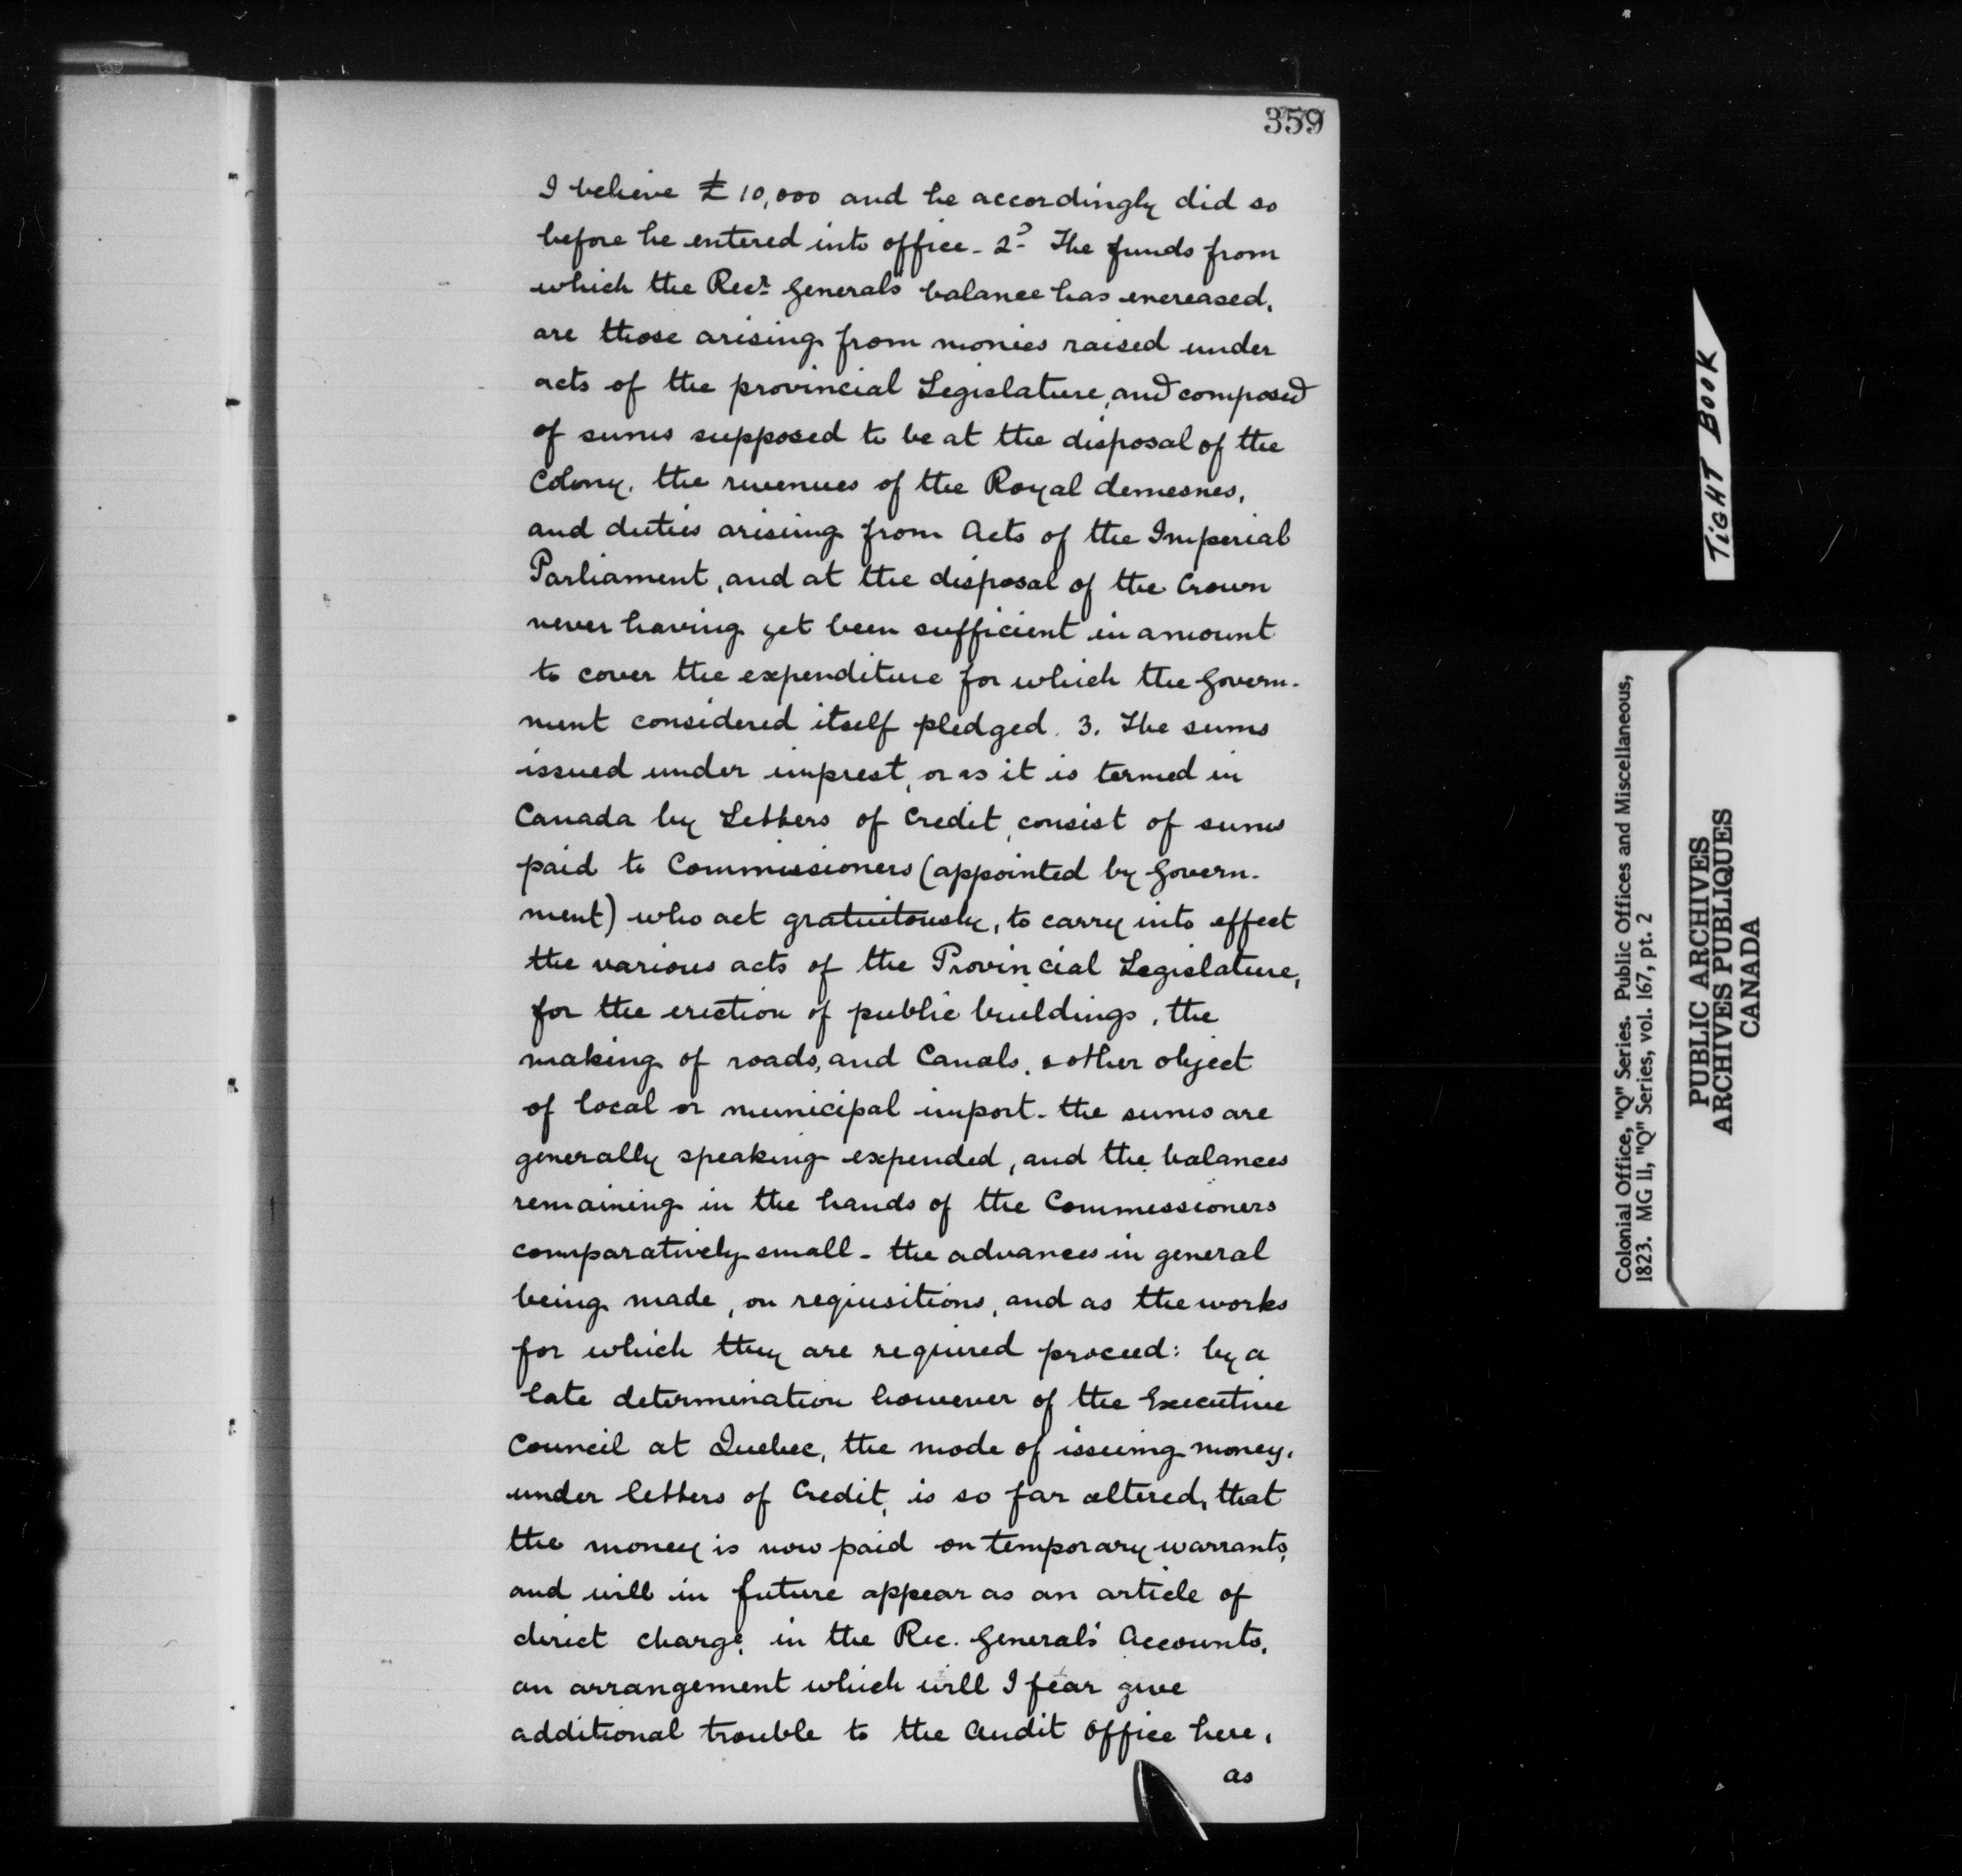 359
I believe £10,000 and he accordingly did so
before he entered into office - 2d The funds from
which the Recr Generals balance has encreased,
are those arising from monies raised under
acts of the provincial Legislature, and composed
of sums supposed to be at the disposal of the
Colony, the revenues of the Royal demesnes,
and duties arising from Acts of the Imperial
Parliament, and at the disposal of the Crown
never having yet been sufficient in amount
to cover the expenditure for which the Govern-
ment considered itself pledged. 3. The sums
issued under imprest, or as it is termed in
Canada by Letters of Credit, consist of sums
paid to Commissioners (appointed by Govern-
ment) who act gratuitously, to carry into effect
the various acts of the Provincial Legislature,
for the erection of public buildings, the
making of roads, and Canals, & other object
of local or municipal import - the sums are
generally speaking expended, and the balances
remaining in the hands of the Commissioners
comparatively small - the advances in general
being made, on requisitions, and as the works
for which they are required proceed: by a
late determination however of the Executive
Council at Quebec, the mode of issuing money,
under letters of Credit, is so far altered, that
the money is now paid on temporary warrants,
and will in future appear as an article of
direct charge, in the Rec. General's Accounts,
an arrangement which will I fear give
additional trouble to the Audit Office here,
as
TIGHT BOOK
Colonial Office, "Q" Series. Public Offices and Miscellaneous,
1823. MG 11, "Q" Series, vol. 167, pt. 2
PUBLIC ARCHIVES
ARCHIVES PUBLIQUES
CANADA